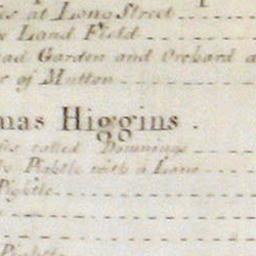 at Long Street
Land Field
Garden and Orchard a
of Mutton
mas Higgins
called Downings
Pightle with a Lane
Pightle
Pightle